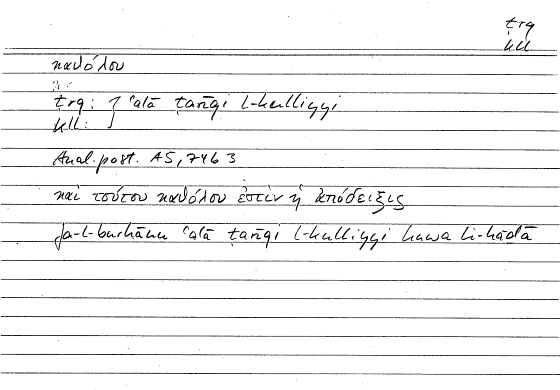 trq
kll
καθόλου
trq: } ʿalā ṭarīqi l-kulliyyi
kll:
Anal. post. A5, 74b 3
καὶ τούτου καθόλου ἐστὶν ἡ ἀπόδειξις
fa-l-burhānu ʿalā ṭarīqi l-kulliyyi huwa li-hāḏā